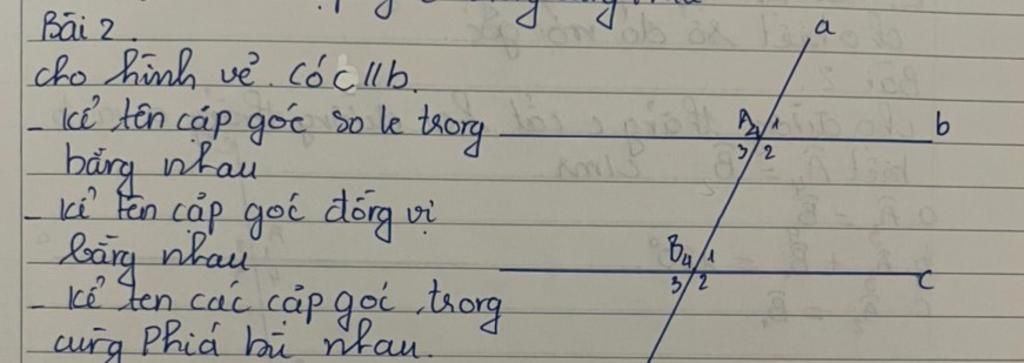 Bài 2.
cho hình vẽ. có c // b.
- kể tên cặp góc so le trong
bằng nhau
- kể tên cặp góc đồng vị
bằng nhau
- kể ten các cặp góc trong
cùng Phiá bù nhau.
a
A4 1 b
3 2
B4 1
3 2 c